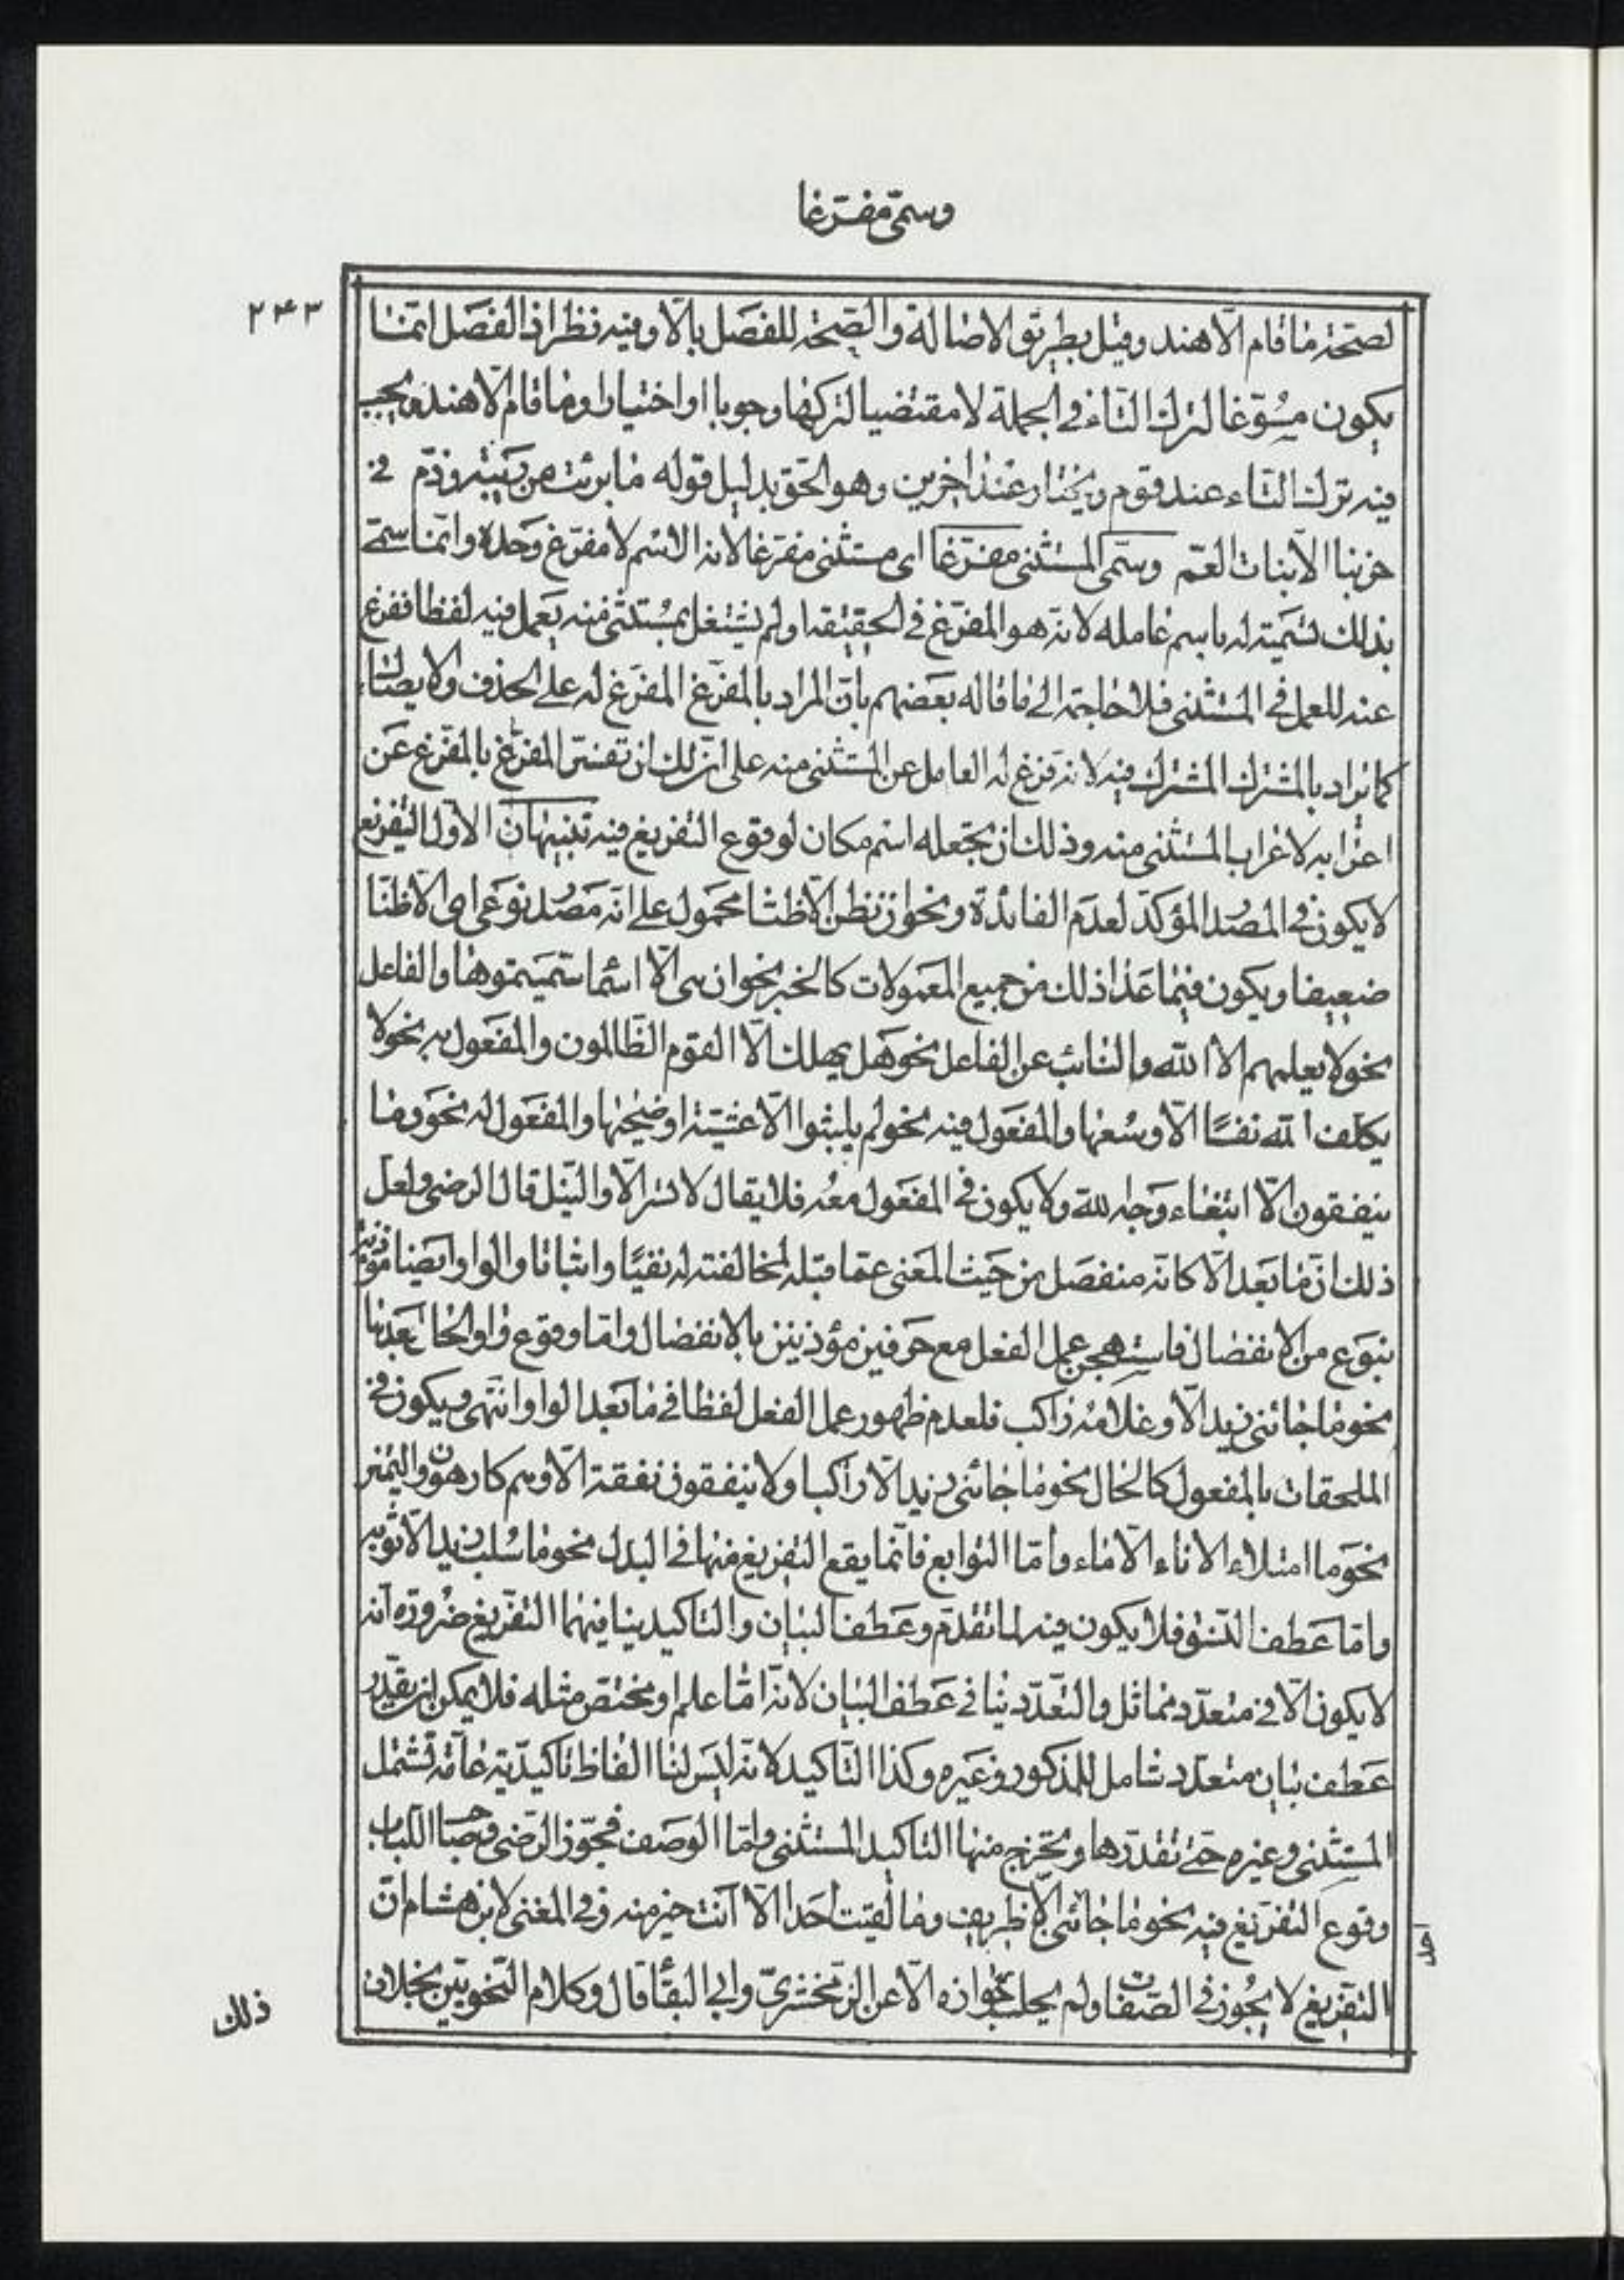 وسمّى مفرّغا
۲۴۳
لصحّة ما قام الّا هند وقيل بطريق الاصالة والصّحة للفصل بالّا وفيه نظر اذ الفصل انّما
يكون مسوّغا لترك التاء في الجملة لا مقتضيا لتركها وجوبا او اختيارا وما قام الّا هند يجب
فيه ترك التاء عند قوم ويختار عند اخرين وهو الحق بدليل قوله ما برئت من ريبة وذمّ في
حربنا الّا بنات العمّ وسمّى المستثنى مفرّغا اى مستثنى مفرّغا لانه الاسم لا مفرّغ وحده وانّما سمّى
بذلك تسمية له باسم عامله لانّه هو المفرّغ في الحقيقة ولم يشتغل بمستثنى منه يعمل فيه لفظا ففرغ
عنه للعمل في المستثنى فلا حاجة الى ما قاله بعضهم بانّ المراد بالمفرّغ المفرّغ له على الحذف والايصال
كما يراد بالمشترك المشترك فيه لانه فرّغ له العامل عن المستثنى منه على انّ لك ان تفسّر المفرّغ بالمفرّغ عن
اعرابه لاعراب المستثنى منه وذلك ان تجعله اسم مكان لوقوع التفريغ فيه تنبيهان الاوّل التفريغ
لا يكون في المصدر المؤكّد لعدم الفائدة ونحو ان نظن الّا ظنّا محمول على انّه مصدر نوعى اى الّا ظنّا
ضعيفا ويكون فيما عدا ذلك من جميع المعمولات كالخبر نحو ان هى الّا اسماء سمّيتموها والفاعل
نحو لا يعلمهم الّا الله والنائب عن الفاعل نحو هل يهلك الّا القوم الظّالمون والمفعول به نحو لا
يكلف الله نفسًا الّا وسعها والمفعول فيه نحو لم يلبثوا الّا عشيّة او ضحيها والمفعول له نحو وما
ينفقون الّا ابتغاء وجه الله ولا يكون في المفعول معه فلا يقال لا تسر الّا والنّيل قال الرضى ولعل
ذلك انّ ما بعد الّا كانّه منفصل من حيث المعنى عمّا قبله لمخالفته له نفيًا واثباتا والواو ايضا مؤذنة
بنوع من الانفصال فاستهجن عمل الفعل مع حرفين مؤذنين بالانفصال وامّا وقوع واو الحال بعدها
نحو ما جائنى زيد الّا وغلامه راكب فلعدم ظهور عمل الفعل لفظا في ما بعد الواو انتهى ويكون في
الملحقات بالمفعول كالحال نحو ما جائنى زيد الّا راكبا ولا ينفقون نفقة الّا وهم كارهون والتميز
نحو ما امتلاء الاناء الّا ماء وامّا التوابع فانّما يقع التفريغ منها في البدل نحو ما سلب زيد الّا ثوبه
وامّا عطف النّسق فلا يكون فيه لما تقدّم وعطف البيان والتاكيد ينافيهما التفريغ ضرورة انّه
لا يكون الّا في متعدّد مماثل والتعدّد ينافى عطف البيان لانّه امّا علم او مختصّ مثله فلا يمكن ان يقدّر
عطف بيان متعدّد شامل للمذكور وغيره وكذا التّاكيد لانّه ليس لنا الفاظ تاكيديّة عامّة تشتمل
المستثنى وغيره حتى تقدّرها ويخرج منها التاكيد المستثنى وامّا الوصف فجوّز الرّضى وصاحب اللّباب
وقوع التفريغ فيه نحو ما جائنى احد الّا ظريف وما لقيت احدا الّا انت خير منه وفي المغنى لابن هشام انّ
التفريغ لا يجوز في الصّفات ولم يحك جوازه الّا عن الزّمخشرىّ وابى البقاء قال وكلام النّحويين بخلاف
ذلك